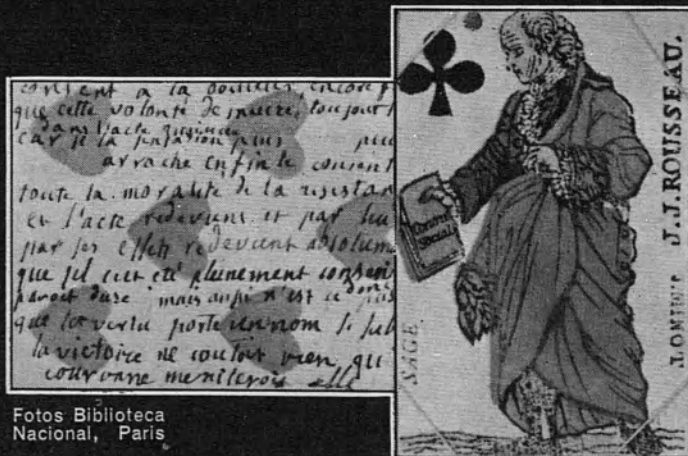 consent a la douleur, encore
que cette volonté de nuire, toujours
dans l'acte
car si la passion plus
arrache enfin le consent
toute la moralité de la resistan
et l'acte redevient et par lui
par ses effets redevient absolum
que s'il eut été pleinement consen
paroit dure mais aussi n'est ce pas
que la vertu porte un nom si sub
la victoire ne coutoit rien qu
couronne meriterois elle
Contrat
Social
SAGE
J.J.ROUSSEAU.
Fotos Biblioteca
Nacional, Paris